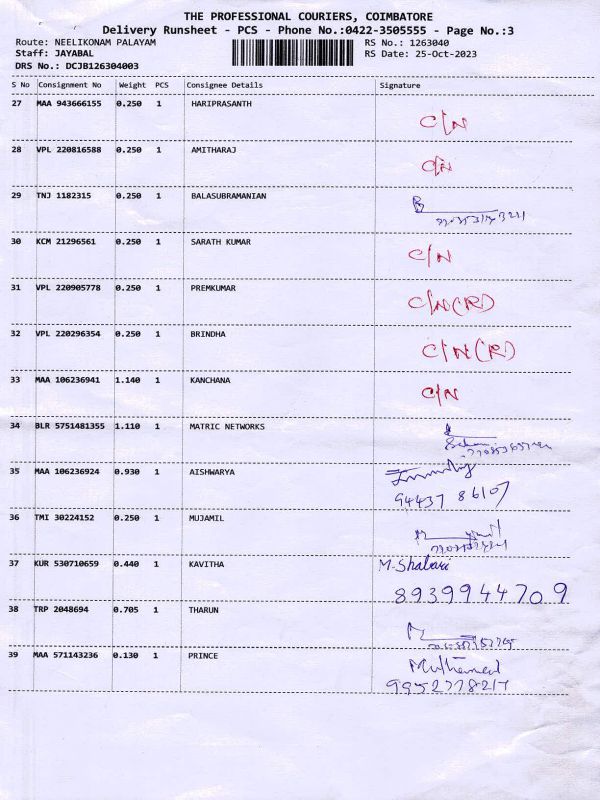 THE PROFESSIONAL COURIERS, COIMBATORE
Delivery Runsheet - PCS - Phone No.:0422-3505555 - Page No.:3
Route: NEELIKONAM PALAYAM RS No.: 1263040
Staff: JAYABAL RS Date: 25-Oct-2023
DRS No.: DCJB126304003
S No Consignment No Weight PCS Consignee Details Signature
27 MAA 943666155 0.250 1 HARIPRASANTH
C/N
28 VPL 220816588 0.250 1 AMITHARAJ
C/N
29 TNJ 1182315 0.250 1 BALASUBRAMANIAN
30 KCM 21296561 0.250 1 SARATH KUMAR
C/N
31 VPL 220905778 0.250 1 PREMKUMAR
C/N(R)
32 VPL 220296354 0.250 1 BRINDHA
C/N(R)
33 MAA 106236941 1.140 1 KANCHANA
C/N
34 BLR 5751481355 1.110 1 MATRIC NETWORKS
35 MAA 106236924 0.930 1 AISHWARYA
94437 86107
36 TMI 30224152 0.250 1 MUJAMIL
37 KUR 530710659 0.440 1 KAVITHA M-Shabari
8939944709
38 TRP 2048694 0.705 1 THARUN
39 MAA 571143236 0.130 1 PRINCE
9952778217